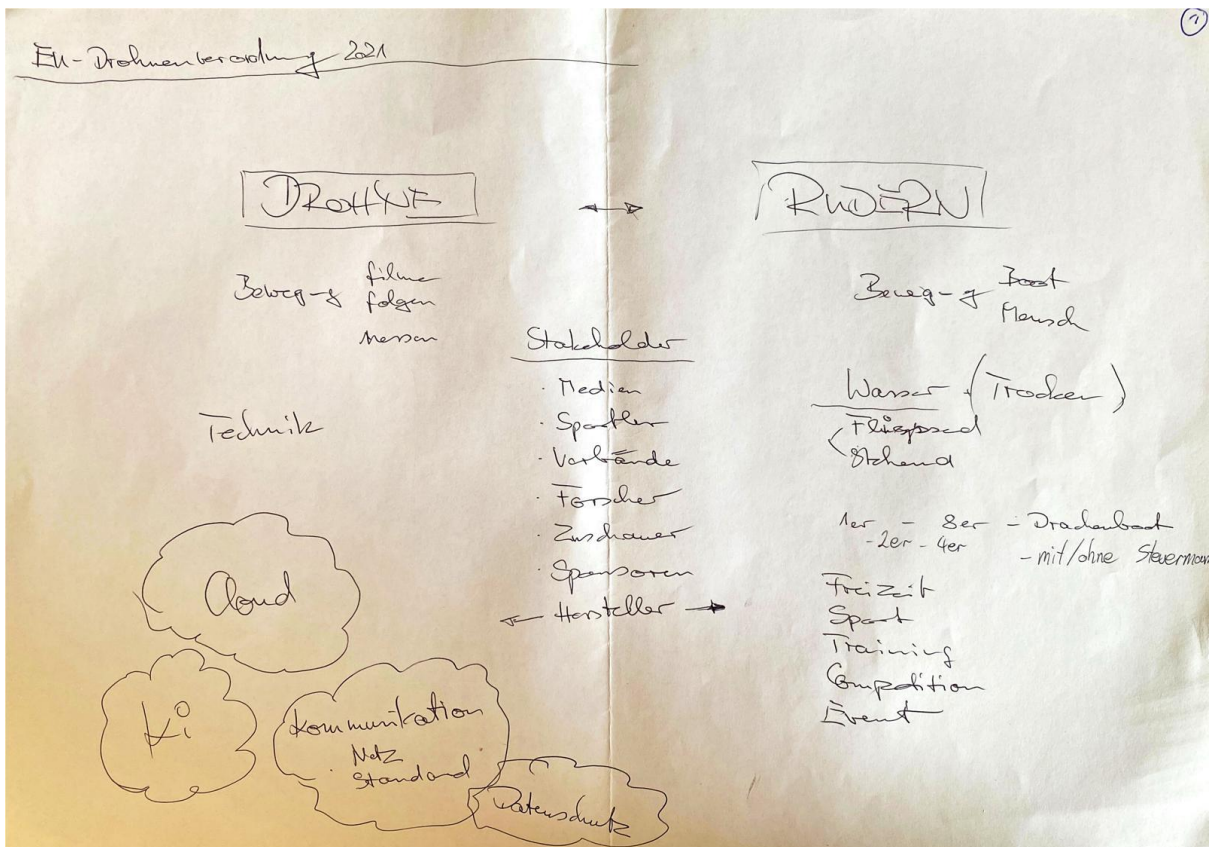 1
EU-Drohnenverordnung 2021
DROHNE ↔ RUDERN
Bewegung filme
folgen
messen
Technik
Cloud
Ki
Kommunikation
Netz
Standard
Datenschutz
Stakeholder
· Medien
· Sportler
· Verbände
· Forscher
· Zuschauer
· Sponsoren
← Hersteller →
Bewegung Boot
Mensch
Wasser (Trocken)
Stehend
1er - 8er - Drachenboot
-2er - 4er
- mit/ohne Steuermann
Freizeit
Sport
Training
Competition
Event